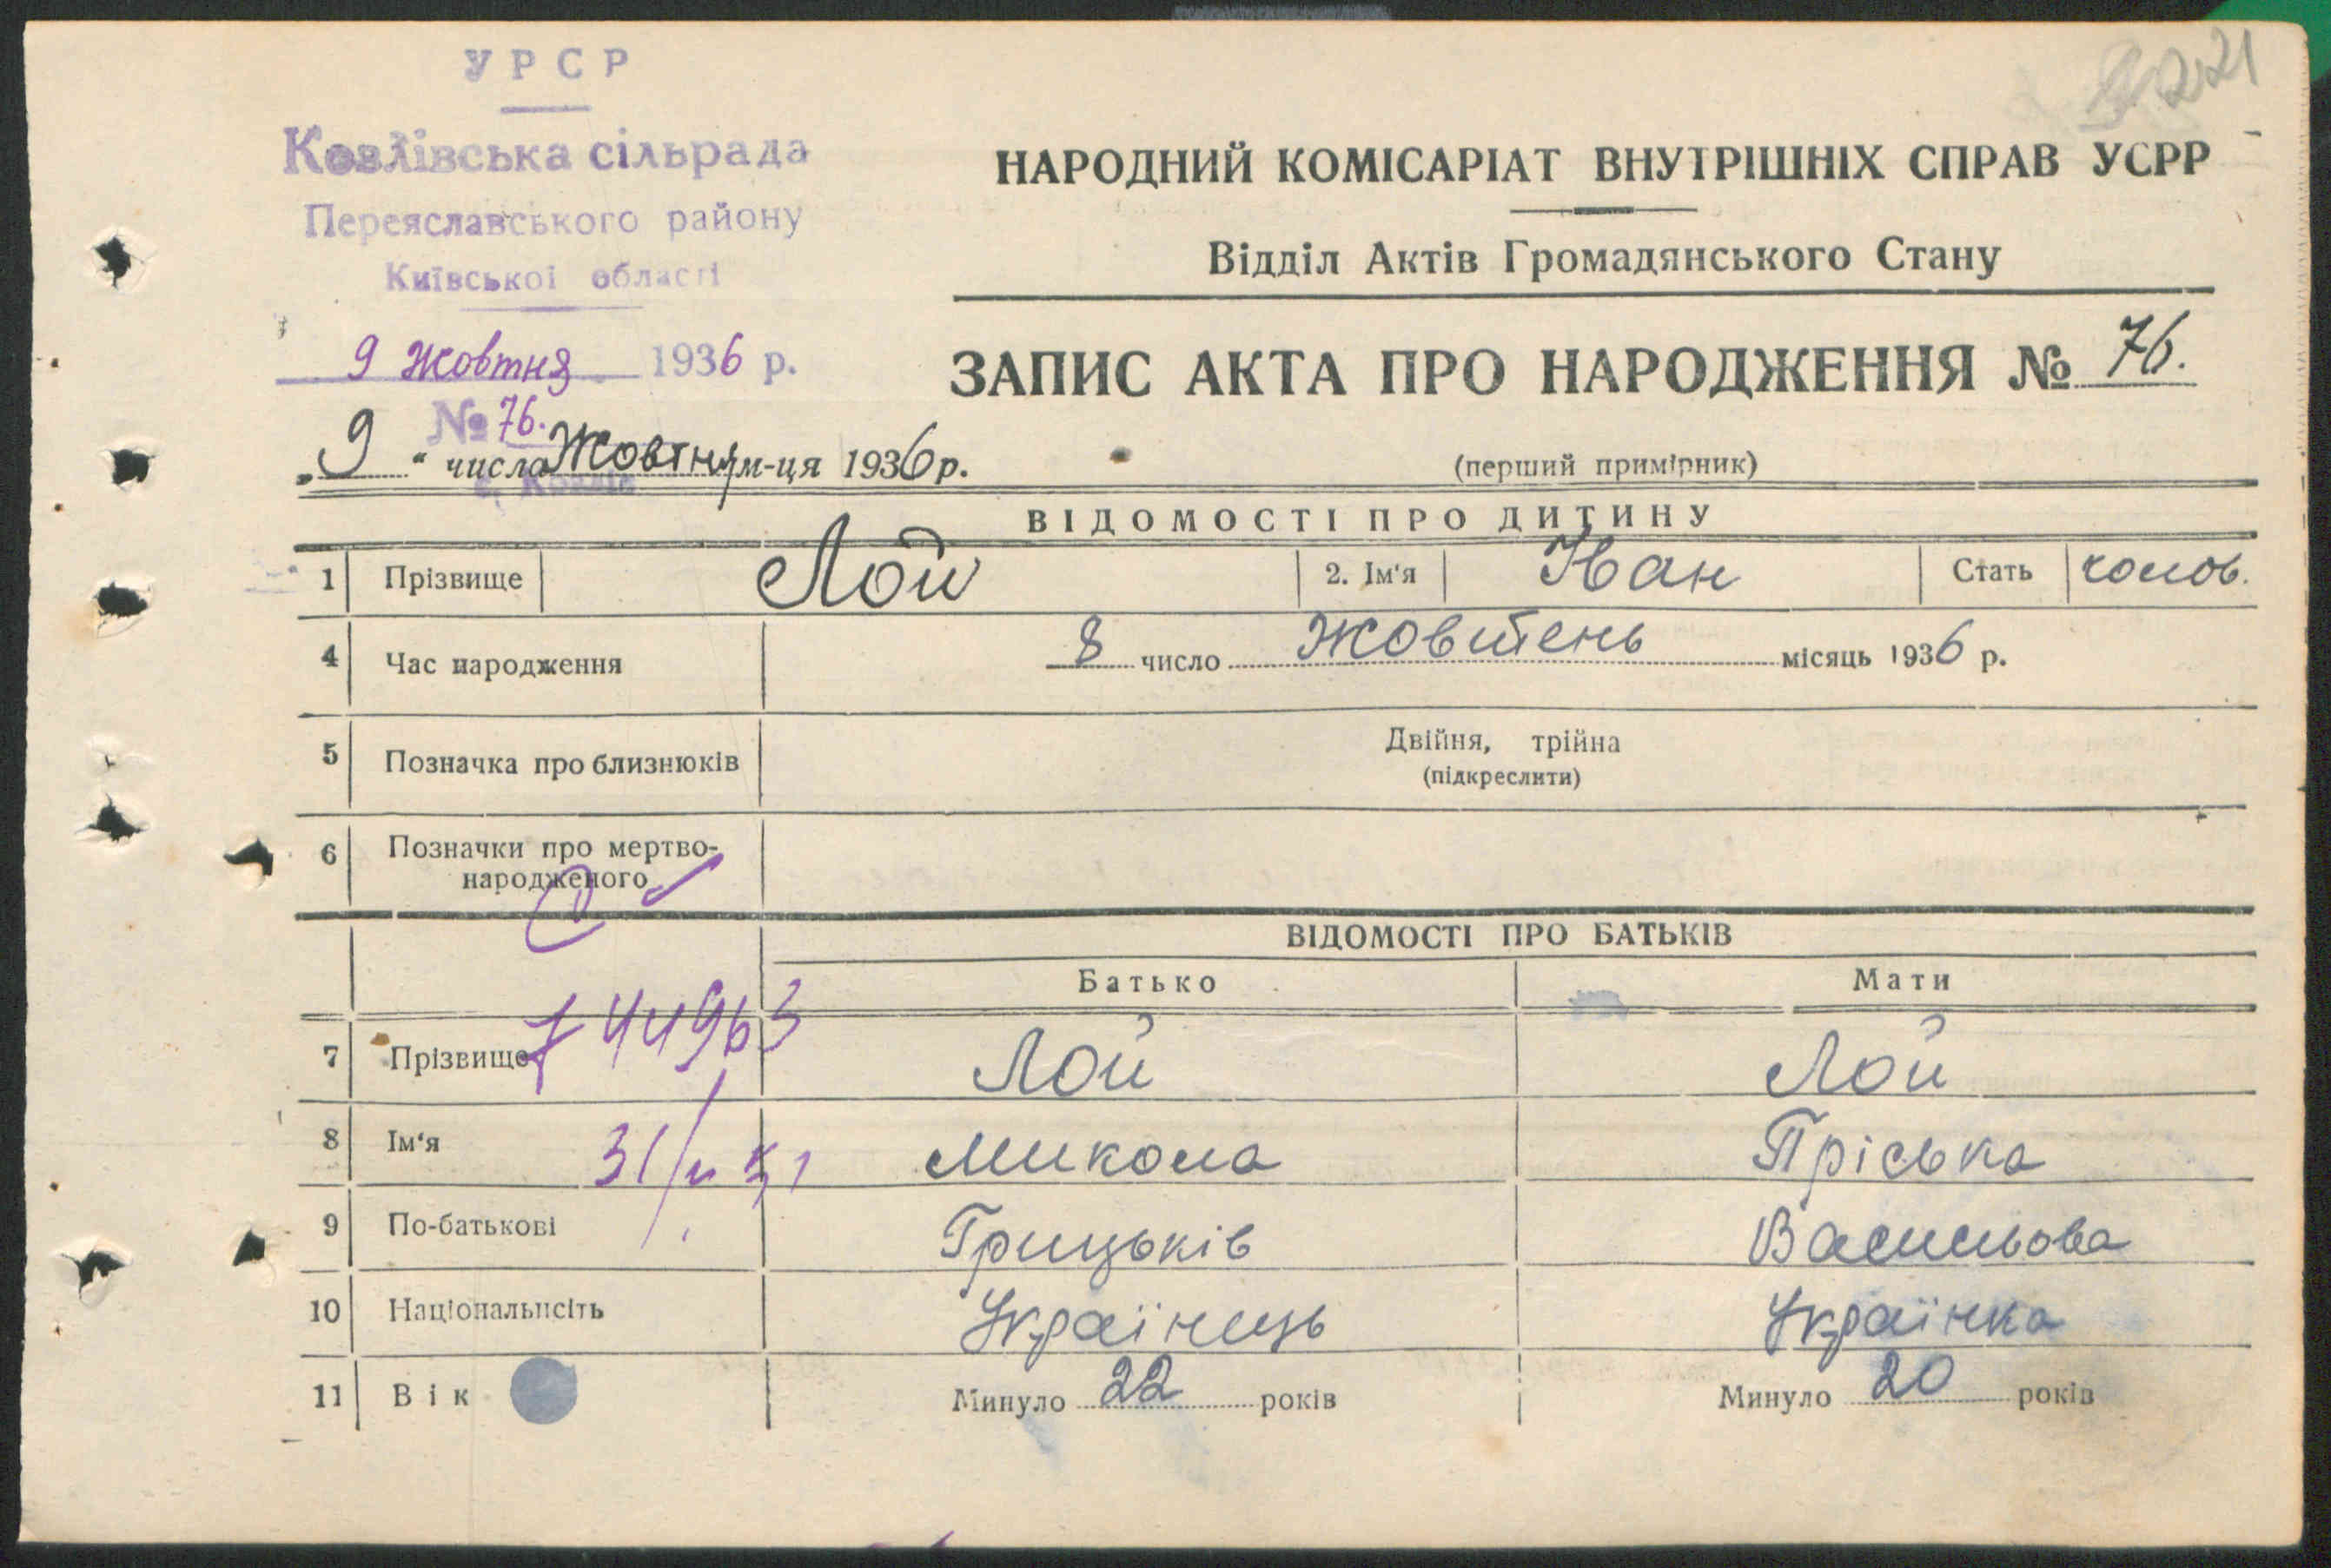 221
УРСР
Козлівська сільрада
Переяславського району
Київської області
9 Жовтня 1936 р.
№ 76.
с. Козлів
НАРОДНИЙ КОМІСАРІАТ ВНУТРІШНІХ СПРАВ УСРР
Відділ Актів Громадянського Стану
ЗАПИС АКТА ПРО НАРОДЖЕННЯ № 76.
„9“ числа Жовтня м-ця 1936 р.
(перший примірник)
ВІДОМОСТІ ПРО ДИТИНУ
1 Прізвище Лой 2. Ім'я Іван Стать чолов.
4 Час народження 8 число Жовтень місяць 1936 р.
5 Позначка про близнюків Двійня, трійна
(підкреслити)
6 Позначки про мертво-
народженого
ВІДОМОСТІ ПРО БАТЬКІВ
Батько Мати
7 Прізвище Лой Лой
44963
8 Ім'я Микола Пріська
9 По-батькові Грицьків Васильова
10 Національнсіть Українець Українка
11 Вік Минуло 22 років Минуло 20 років